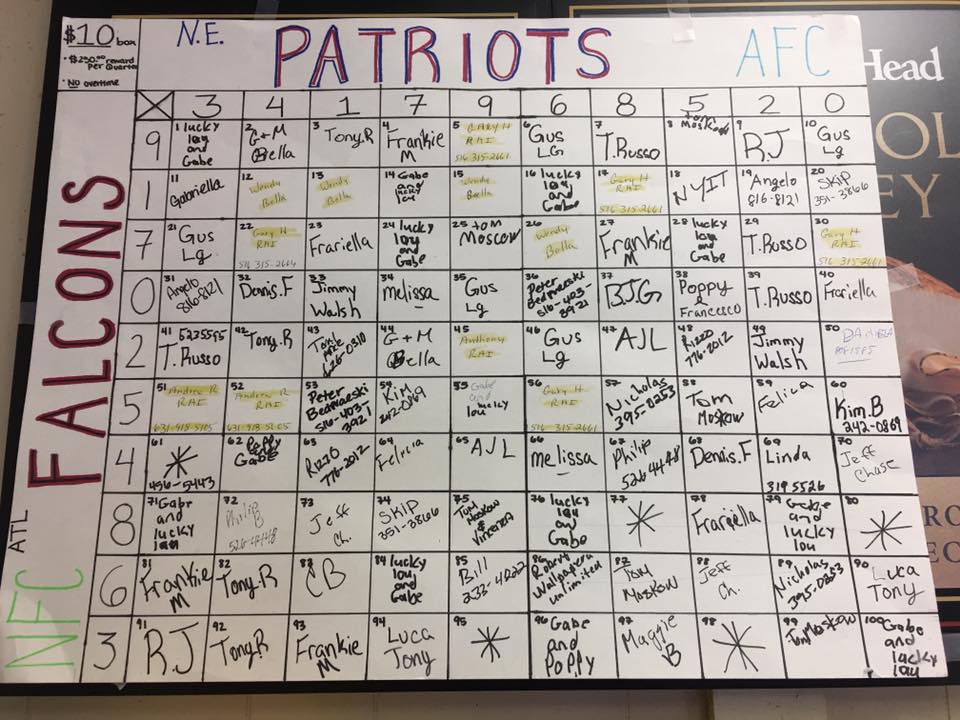 $10 box
• $250.00 reward
Per Quarter
• No overtime
N.E. PATRIOTS AFC
Head
NFC ATL FALCONS
3 4 1 7 9 6 8 5 2 0
9
1 lucky lou and Gabe
2 G + M Bella
3 Tony.R
4 Frankie M
5 GARY H RAI 516 315-2661
6 Gus LG
7 T.Russo
8 Tom Moskow
9 RJ
10 Gus Lg
1
11 Gabriella
12 Wendy Bella
13 Wendy Bella
14 Gabe and lucky lou
15 Wendy Bella
16 lucky lou and Gabe
17 Gary H RAI 516 315-2661
18 NYIT
19 Angelo 816-8121
20 SKIP 351-3866
7
21 Gus Lg
22 Gary H RAI 516 315-2661
23 Frariella
24 lucky lou and Gabe
25 Tom Moscow
26 Wendy Bella
27 Frankie M
28 lucky lou and Gabe
29 T.Russo
30 Gary H RAI 516 315-2661
0
31 Angelo 816-8121
32 Dennis.F
33 Jimmy Walsh
34 melissa
35 Gus Lg
36 Peter Bednarski 516-403-3921
37 BJG
38 Poppy & Francesco
39 T.Russo
40 Frariella
2
41 5235595 T.Russo
42 Tony.R
43 626-0310
44 G + M Bella
45 Anthony RAI
46 Gus Lg
47 AJL
48 Rizzo 776-2012
49 Jimmy Walsh
50
5
51 Andrew R RAI 631-918-5105
52 Andrew R RAI 631-918-5105
53 Peter Bednarski 516-403-3921
54 Kim 242-0869
55 Gabe and lucky lou
56 Gary H RAI 516 315-2661
57 Nicholas 395-0253
58 Tom Moskow
59 Felicia
60 Kim.B 242-0869
4
61 * 456-5443
62 Poppy Gabe
63 Rizzo 776-2012
64 Felicia
65 AJL
66 melissa
67 Philip 526 4448
68 Dennis.F
69 Linda 319 5526
70 Jeff Chase
8
71 Gabe and lucky lou
72 Philip B 526-4448
73 Jeff Ch.
74 SKIP 351-3866
75 Tom Moskow & Vincenza
76 lucky lou and Gabe
77 *
78 Frariella
79 Gabe and lucky lou
80 *
6
81 Frankie M
82 Tony.R
83 CB
84 lucky lou and Gabe
85 Bill 233-4022
86 Robert Wallpapers unlimited
87 Tom Moskow
88 Jeff Ch.
89 Nicholas 395-0253
90 Luca Tony
3
91 RJ
92 Tony.R
93 Frankie M
94 Luca Tony
95 *
96 Gabe and Poppy
97 Maggie B
98 *
99 Tom Moskow
100 Gabe and lucky lou